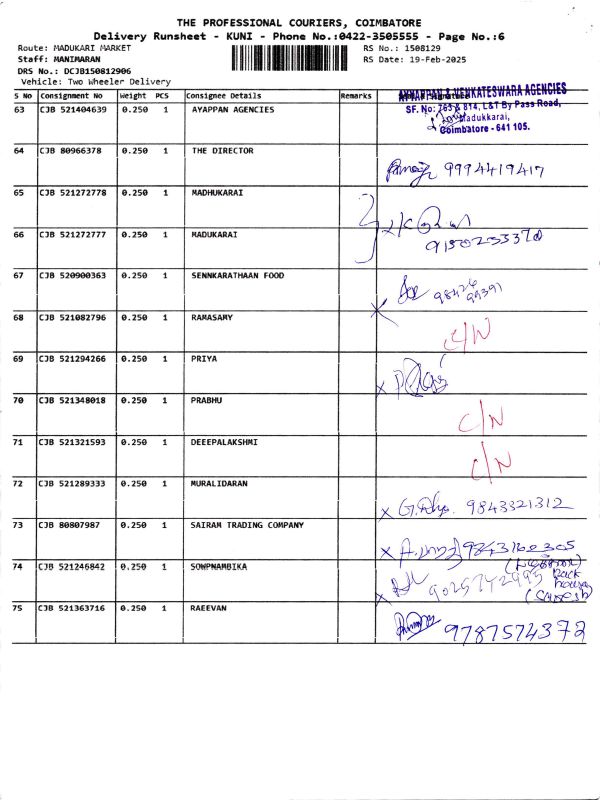 THE PROFESSIONAL COURIERS, COIMBATORE
Delivery Runsheet - KUNI - Phone No.:0422-3505555 - Page No.:6
Route: MADUKARI MARKET RS No.: 1508129
Staff: MANIMARAN RS Date: 19-Feb-2025
DRS No.: DCJB150812906
Vehicle: Two Wheeler Delivery
S No Consignment No Weight PCS Consignee Details Remarks
63 CJB 521404639 0.250 1 AYAPPAN AGENCIES
AYYAPPAN & VENKATESWARA AGENCIES
SF. No: 763 & 814, L&T By Pass Road,
Madukkarai,
Coimbatore - 641 105.
64 CJB 80966378 0.250 1 THE DIRECTOR 9994419417
65 CJB 521272778 0.250 1 MADHUKARAI
66 CJB 521272777 0.250 1 MADUKARAI
67 CJB 520900363 0.250 1 SENNKARATHAAN FOOD
68 CJB 521082796 0.250 1 RAMASAMY C/N
69 CJB 521294266 0.250 1 PRIYA
70 CJB 521348018 0.250 1 PRABHU C/N
71 CJB 521321593 0.250 1 DEEEPALAKSHMI C/N
72 CJB 521289333 0.250 1 MURALIDARAN 9843321312
73 CJB 80807987 0.250 1 SAIRAM TRADING COMPANY 9843160305
74 CJB 521246842 0.250 1 SOWPNAMBIKA 9025742993 back
house
75 CJB 521363716 0.250 1 RAEEVAN 9787574372